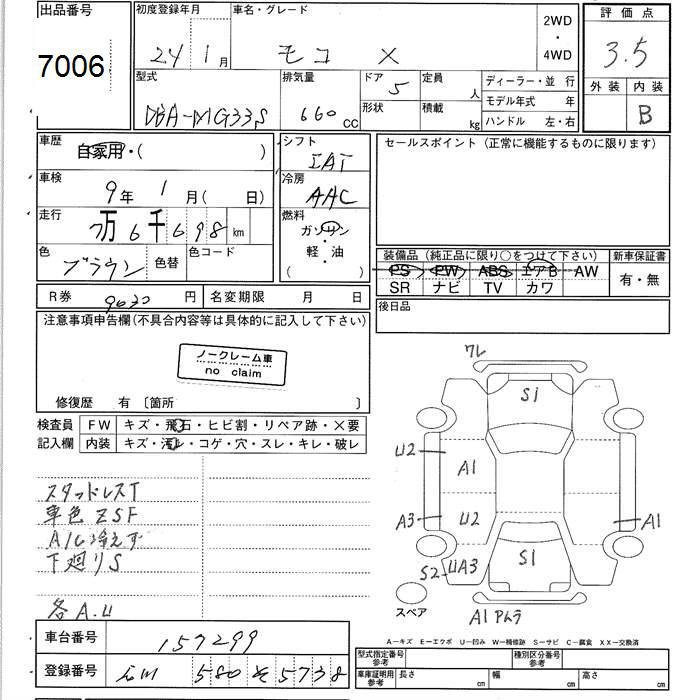 出品番号
7006
初度登録年月
24年1月
車名・グレード
モコ X
2WD
・
4WD
評価点
3.5
外装 内装
B
型式
DBA-MG33S
排気量
660 CC
ドア
5
形状
定員
人
積載
kg
ディーラー・並行
モデル年式 年
ハンドル 左・右
車歴
自家用・( )
車検
9年 1月( 日)
走行
7万6千698 km
色
ブラウン
色替
色コード
シフト
IAT
冷房
AAC
燃料
ガソリン
・
軽・油
( )
セールスポイント (正常に機能するものに限ります)
装備品 (純正品に限り○をつけて下さい)
PS PW ABS エアB AW
SR ナビ TV カワ
新車保証書
有・無
R券 9630 円
名変期限 月 日
後日品
注意事項申告欄(不具合内容等は具体的に記入して下さい)
ノークレーム車
no claim
修復歴 有 〔箇所 〕
検査員
記入欄
FW キズ・飛石・ヒビ割・リペア跡・×要
内装 キズ・汚レ・コゲ・穴・スレ・キレ・破レ
スタッドレスT
車色ZSF
A/C冷えず
下廻りS
各A.U
ワレ
S1
U2
A1
A3
U2
A1
S2
UA3
S1
スペア
A1 アムラ
A-キズ E-エクボ U-凹み W-補修跡 S-サビ C-腐食 XX-交換済
車台番号
157299
登録番号
580 そ 5738
型式指定番号
参考
種別区分番号
参考
車庫証明用
参考
長さ cm
幅 cm
高さ cm